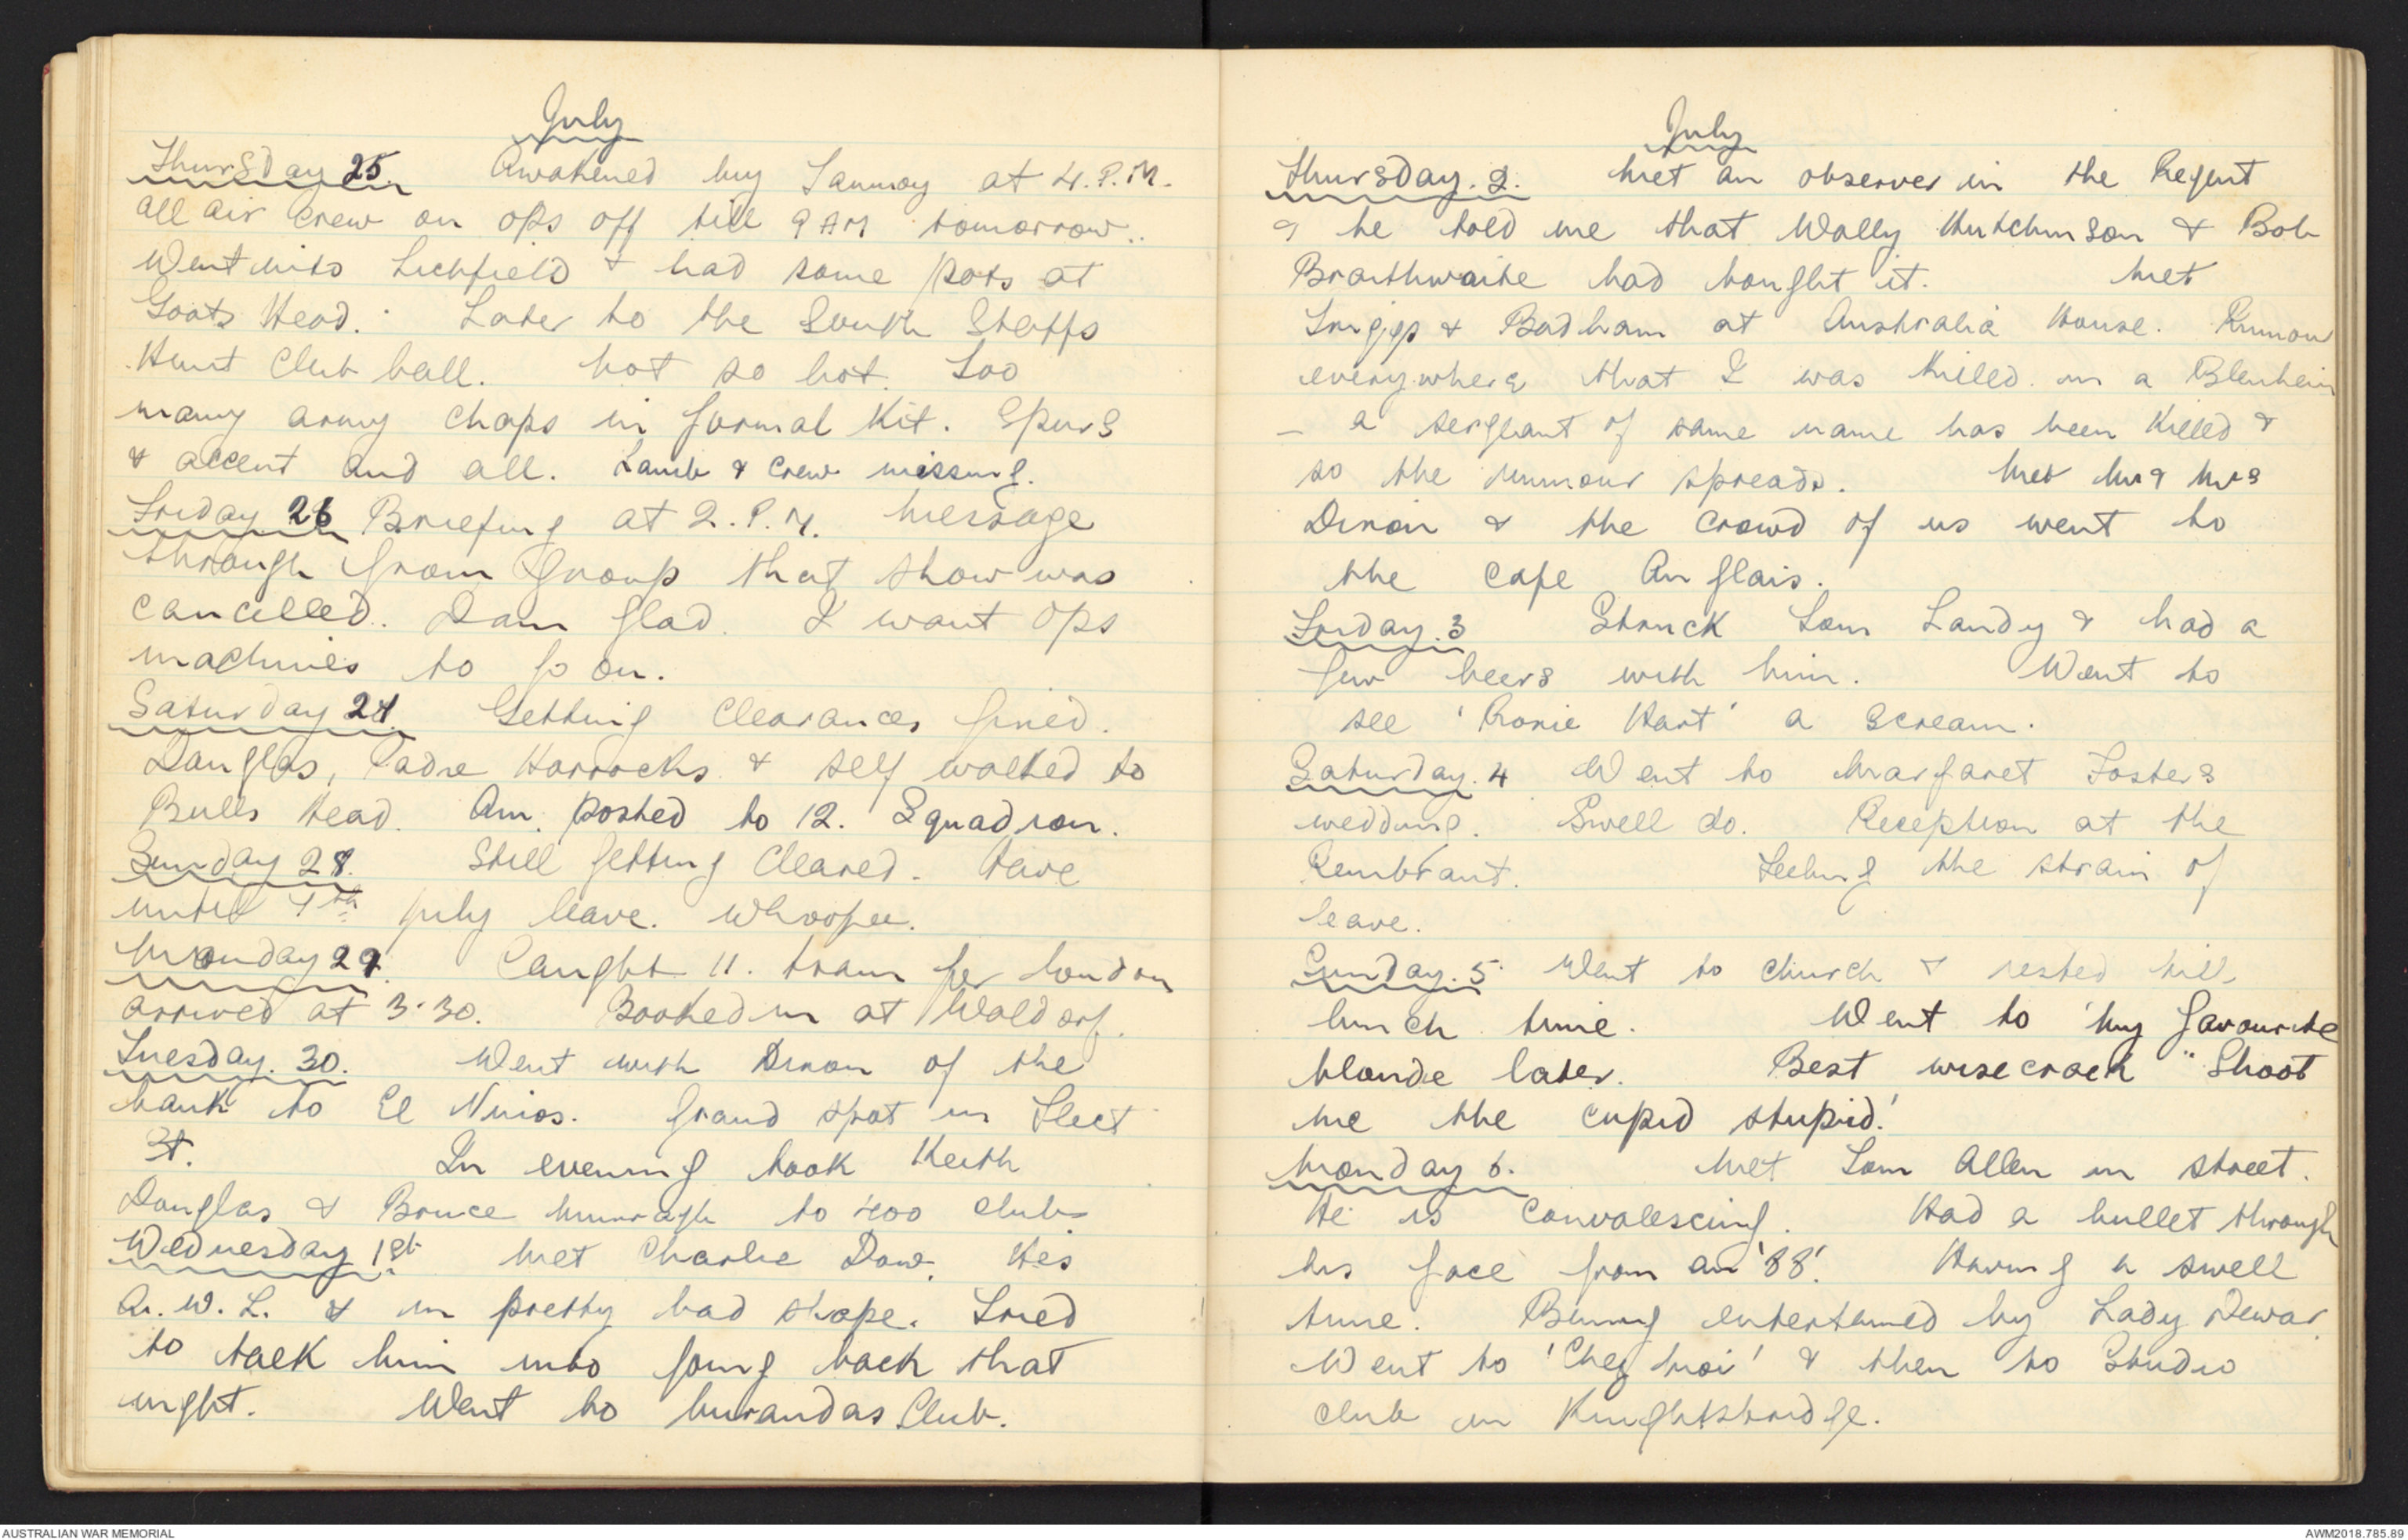 July
Thursday 25. Awakened by Tammy at 4.P.M.
All air crew on ops off till 9 AM tomorrow..
Went into Lichfield & had some pots at
Goats Head. Later to the South Staffs
Hunt Club ball. Not so hot. Too
many army chaps in formal kit. Spurs
& accent and all. Lamb & crew missing.
Friday 26 Briefing at 2.P.M. Message
through from Group that show was
cancelled. Dam glad. I want ops
machines to go on.
Saturday 27. Getting clearances fixed.
Douglas, Padre Harrocks & self walked to
Bulls Head. Am posted to 12. Squadron.
Sunday 28. Still getting cleared. Have
until 7th July leave. Whoopee.
Monday 29. Caught 11. train for London
arrived at 3.30. Booked in at Waldorf.
Tuesday. 30. Went with Dixon of the
bank to El Ninos. Grand spot in Fleet
St. In evening took Keith
Douglas & Bruce Murragh to 400 club
Wednesday 1st. Met Charlie Dow. He's
A.W.L. & in pretty bad shape. Tried
to talk him into going back that
night. Went to Murandas Club.
July
Thursday. 2. Met an observer in the Regent
& he told me that Wally Hutchinson & Bob
Braithwaite had bought it. Met
Trigg & Badham at Australia House. Rumour
everywhere that I was killed in a Blenheim
- a sergeant of same name has been killed &
so the rumour spreads. Met Mr & Mrs
Dixon & the crowd of us went to
the Cafe Anglais.
Friday. 3 Struck Tom Landy & had a
few beers with him. Went to
see 'Roxie Hart' a scream.
Saturday. 4 Went to Margaret Fosters
wedding. Swell do. Reception at the
Rembrant. Feeling the strain of
leave.
Sunday. 5. Went to church & rested till
lunch time. Went to 'My favourite
blonde later. Best wisecrack "Shoot
me the cupid stupid.'
Monday 6. Met Tom Allen in street.
He is convalescing. Had a bullet through
his face from an '88'. Having a swell
time. Being entertained by Lady Dewar.
Went to 'Chez Moi' & then to Studio
club in Knightsbridge.
AUSTRALIAN WAR MEMORIAL
AWM2018.785.89